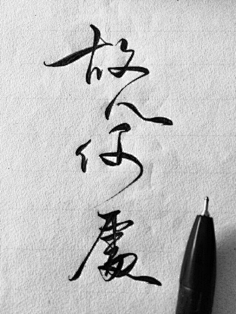 故人何處